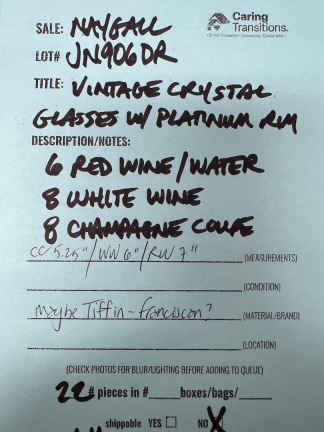 Caring
Transitions.
SALE: NAYGALL
LOT# JN906DR
TITLE: VINTAGE CRYSTAL
GLASSES W/ PLATINUM RIM
DESCRIPTION/NOTES:
6 RED WINE/WATER
8 WHITE WINE
8 CHAMPAGNE COUPE
CC 5.25"/WW 6"/RW 7" (MEASUREMENTS)
(CONDITION)
maybe Tiffin-franciscan? (MATERIAL/BRAND)
(LOCATION)
(CHECK PHOTOS FOR BLUR/LIGHTING BEFORE ADDING TO QUEUE)
22 # pieces in # boxes/bags/
shippable YES ☐ NO X